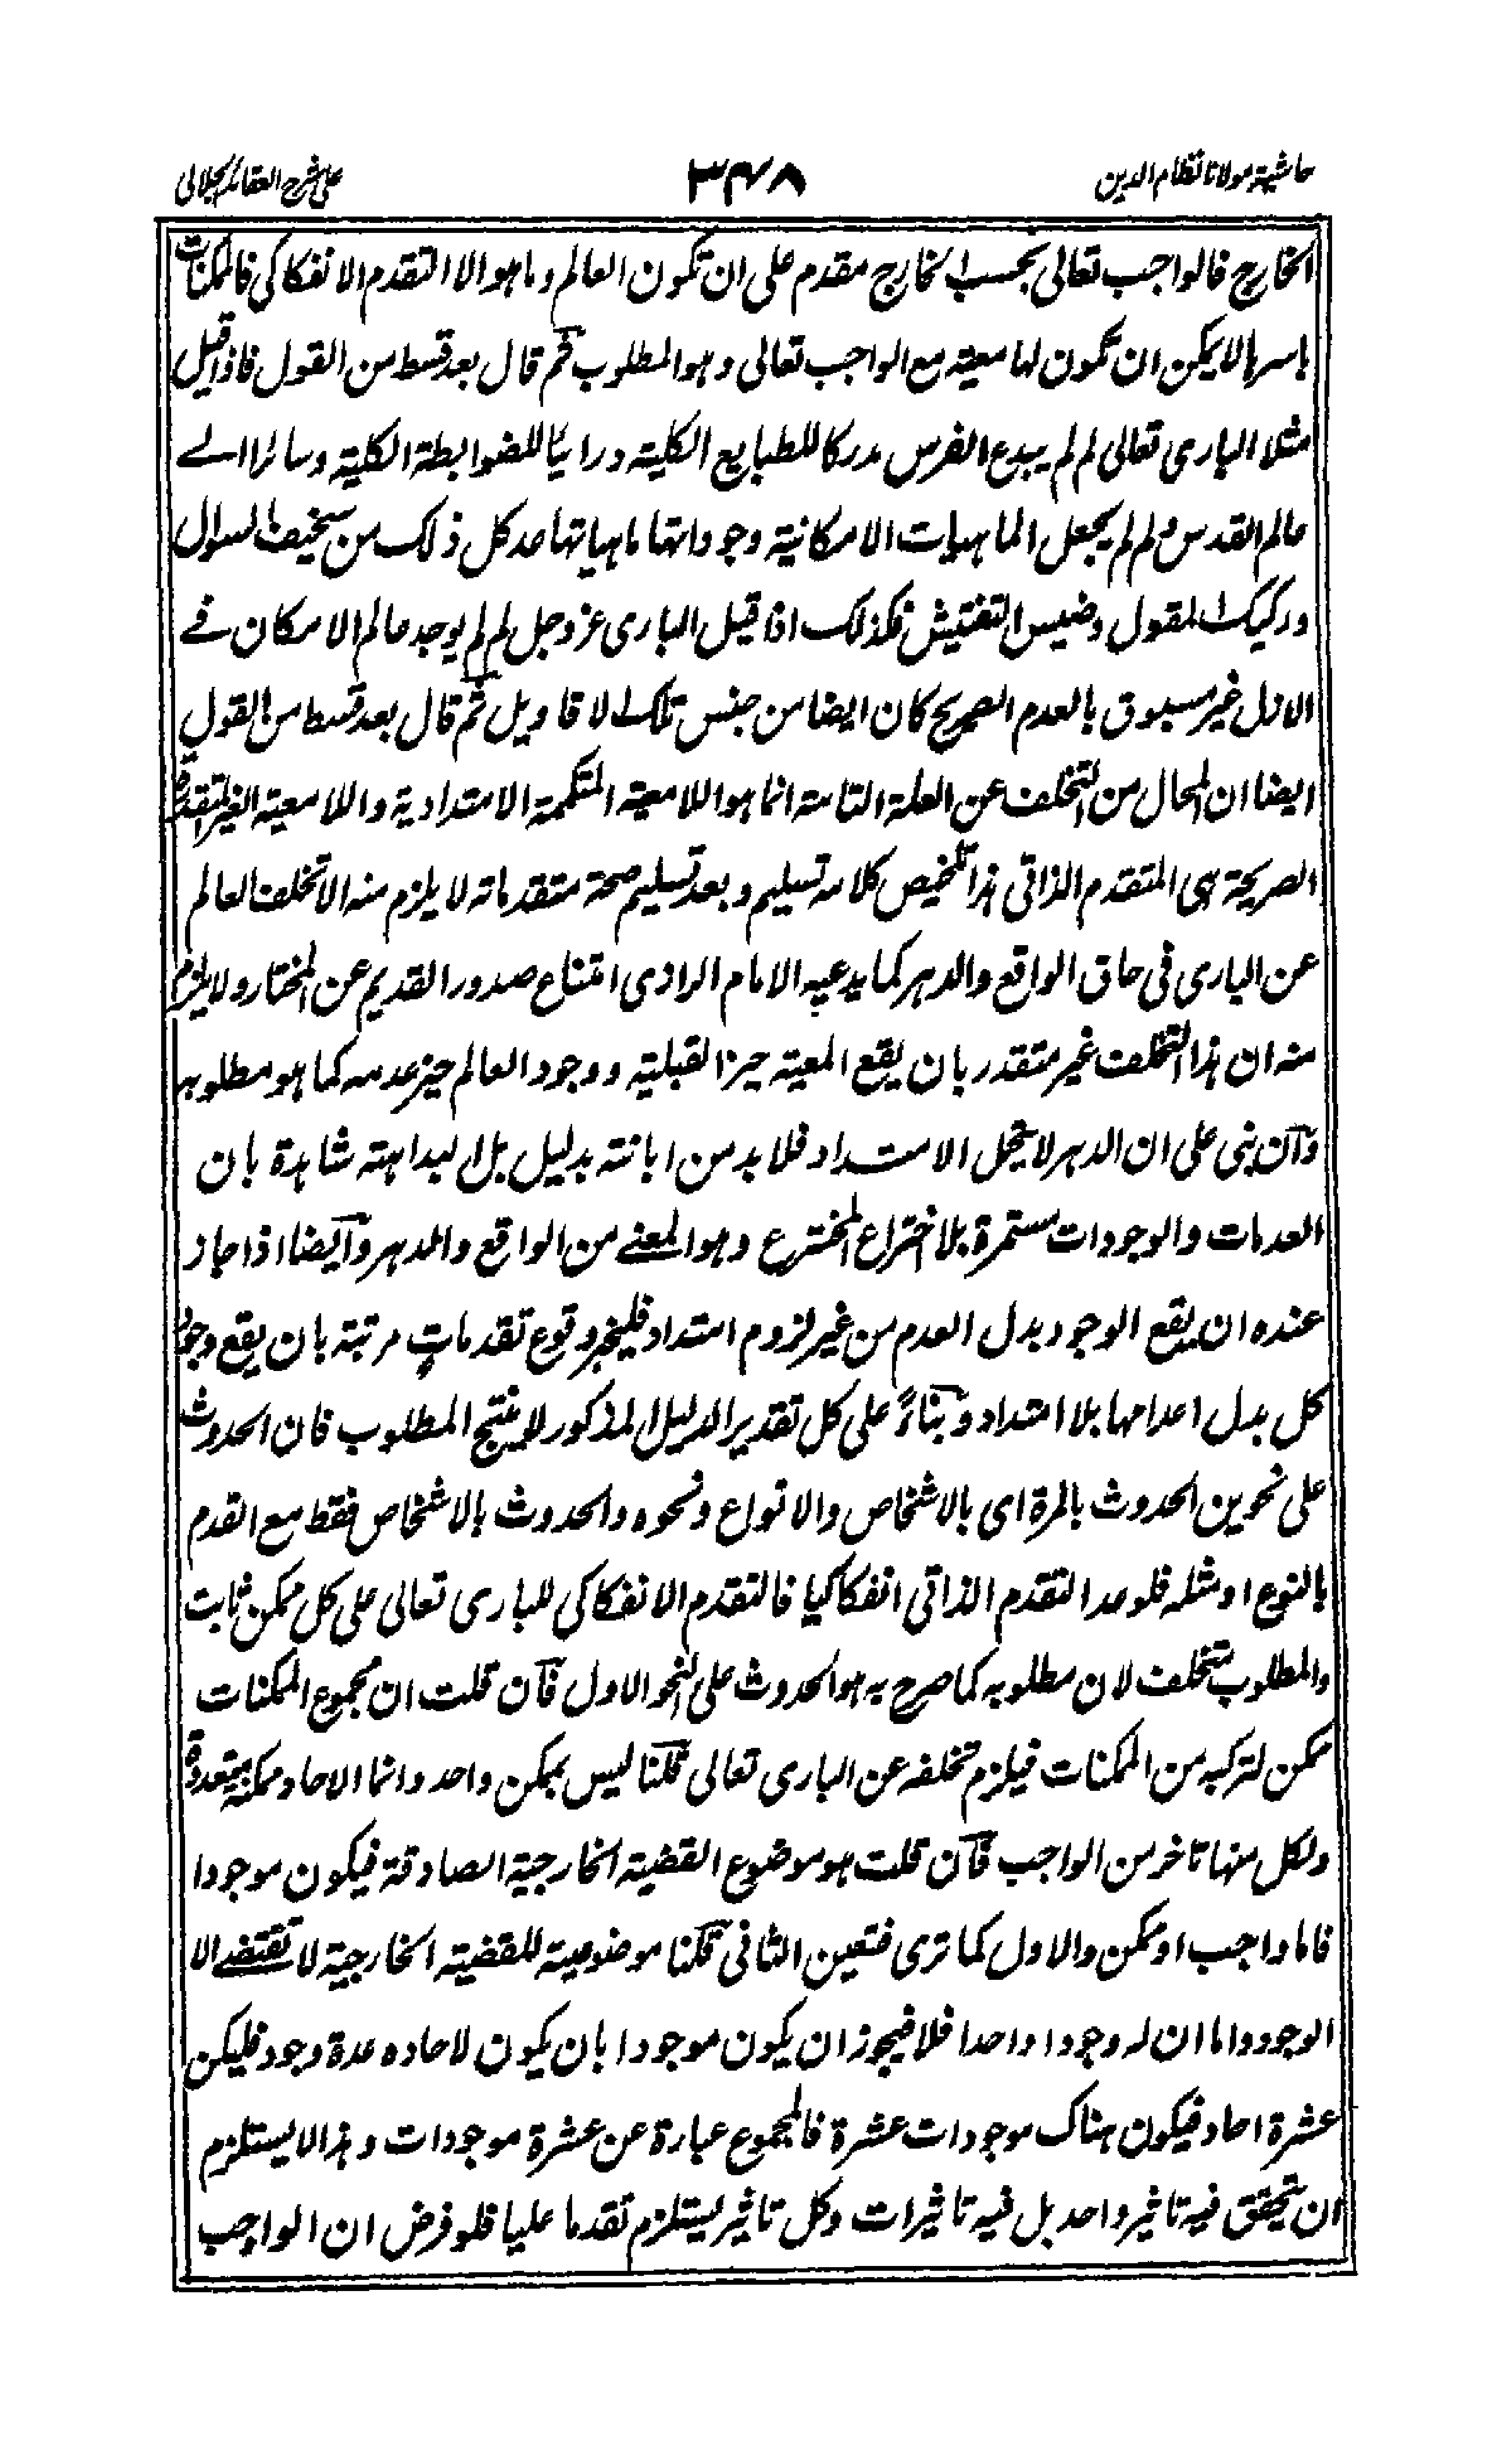 حاشية مولانا نظام الدين
٣٤٨
على شرح العقائد الجلالى
الخارج فالواجب تعالى بحسب الخارج مقدم على ان تكون العالم وما هو الا التقدم الانفكاكى فالممكنات
باسرها لا يمكن ان تكون لها معية مع الواجب تعالى وهو المطلوب ثم قال بعد قسط من القول فاذا قيل
مثلا البارى تعالى لم لم يبدع الفرس مدركا للطبايع الكلية ورائيا للضوابطة الكلية وسائرا الے
عالم القدس ولم لم يجعل الماهيات الامكانية وجوداتها ماهياتها عد كل ذلك من سخيف السوال
وركيك المقول وخسيس التفتيش فكذلك اذا قيل البارى عز وجل لم لم يوجد عالم الامكان فے
الازل غير مسبوق بالعدم الصريح كان ايضا من جنس تلك الاقاويل ثم قال بعد قسط من القول
ايضا ان المحال من التخلف عن العلة التامة انما هو اللامعية المتكممة الامتدادية واللامعية الغير المتقدرة
الصريحة هى المتقدم الذاتى هذا تلخيص كلامه تسليم وبعد تسليم صحة متقدماته لا يلزم منه الا تخلف العالم
عن البارى فى حاق الواقع والدهر كما يدعيه الامام الرازى امتناع صدور القديم عن المختار ولا يلزم
منه ان هذا التخلف غير متقدر بان يقع المعية حيز القبلية ووجود العالم حيز عدمه كما هو مطلوبه
وان بنى على ان الدهر لا يتحمل الامتداد فلا بد من ابانته بدليل بل البداهته شاهدة بان
العدمات والوجودات مستمرة بلا اختراع المخترع وهو المعنے من الواقع والدهر وايضا اذا جاز
عنده ان يقع الوجود بدل العدم من غير لزوم امتداد فليخبر وقوع تقدمات مرتبة بان يقع وجود
كل بدل اعدامها بلا امتداد وبناءً على كل تقدير الدليل المذكور لا ينتج المطلوب فان الحدوث
على نحوين الحدوث بالمرة اى بالاشخاص والانواع ونحوه والحدوث بالاشخاص فقط مع القدم
بالنوع او مثله فلو عد التقدم الذاتى انفكاكيا فالتقدم الانفكاكى للبارى تعالى على كل ممكن ثابت
والمطلوب متخلف لان مطلوبه كما صرح به هو الحدوث على النحو الاول فان قلت ان مجموع الممكنات
ممكن لتركبه من الممكنات فيلزم تخلفه عن البارى تعالى قلنا ليس بممكن واحد وانما الاحاد ممكنة متعددة
ولكل منها تاخر من الواجب فان قلت هو موضوع القضية الخارجية الصادقة فيكون موجودا
فاما واجب او ممكن والاول كما ترى فتعين الثانى قلنا موضوعية للقضية الخارجية لا تقتضے الا
الوجود واما ان له وجودا واحدا فلا فيجوز ان يكون موجودا بان يكون لاحاده عدة وجود فليكن
عشرة احاد فيكون هناك موجودات عشرة فالمجموع عبارة عن عشرة موجودات وهذا لا يستلزم
ان يتحقق فيه تاثير واحد بل فيه تاثيرات وكل تاثير يستلزم تقدما عليا فلو فرض ان الواجب